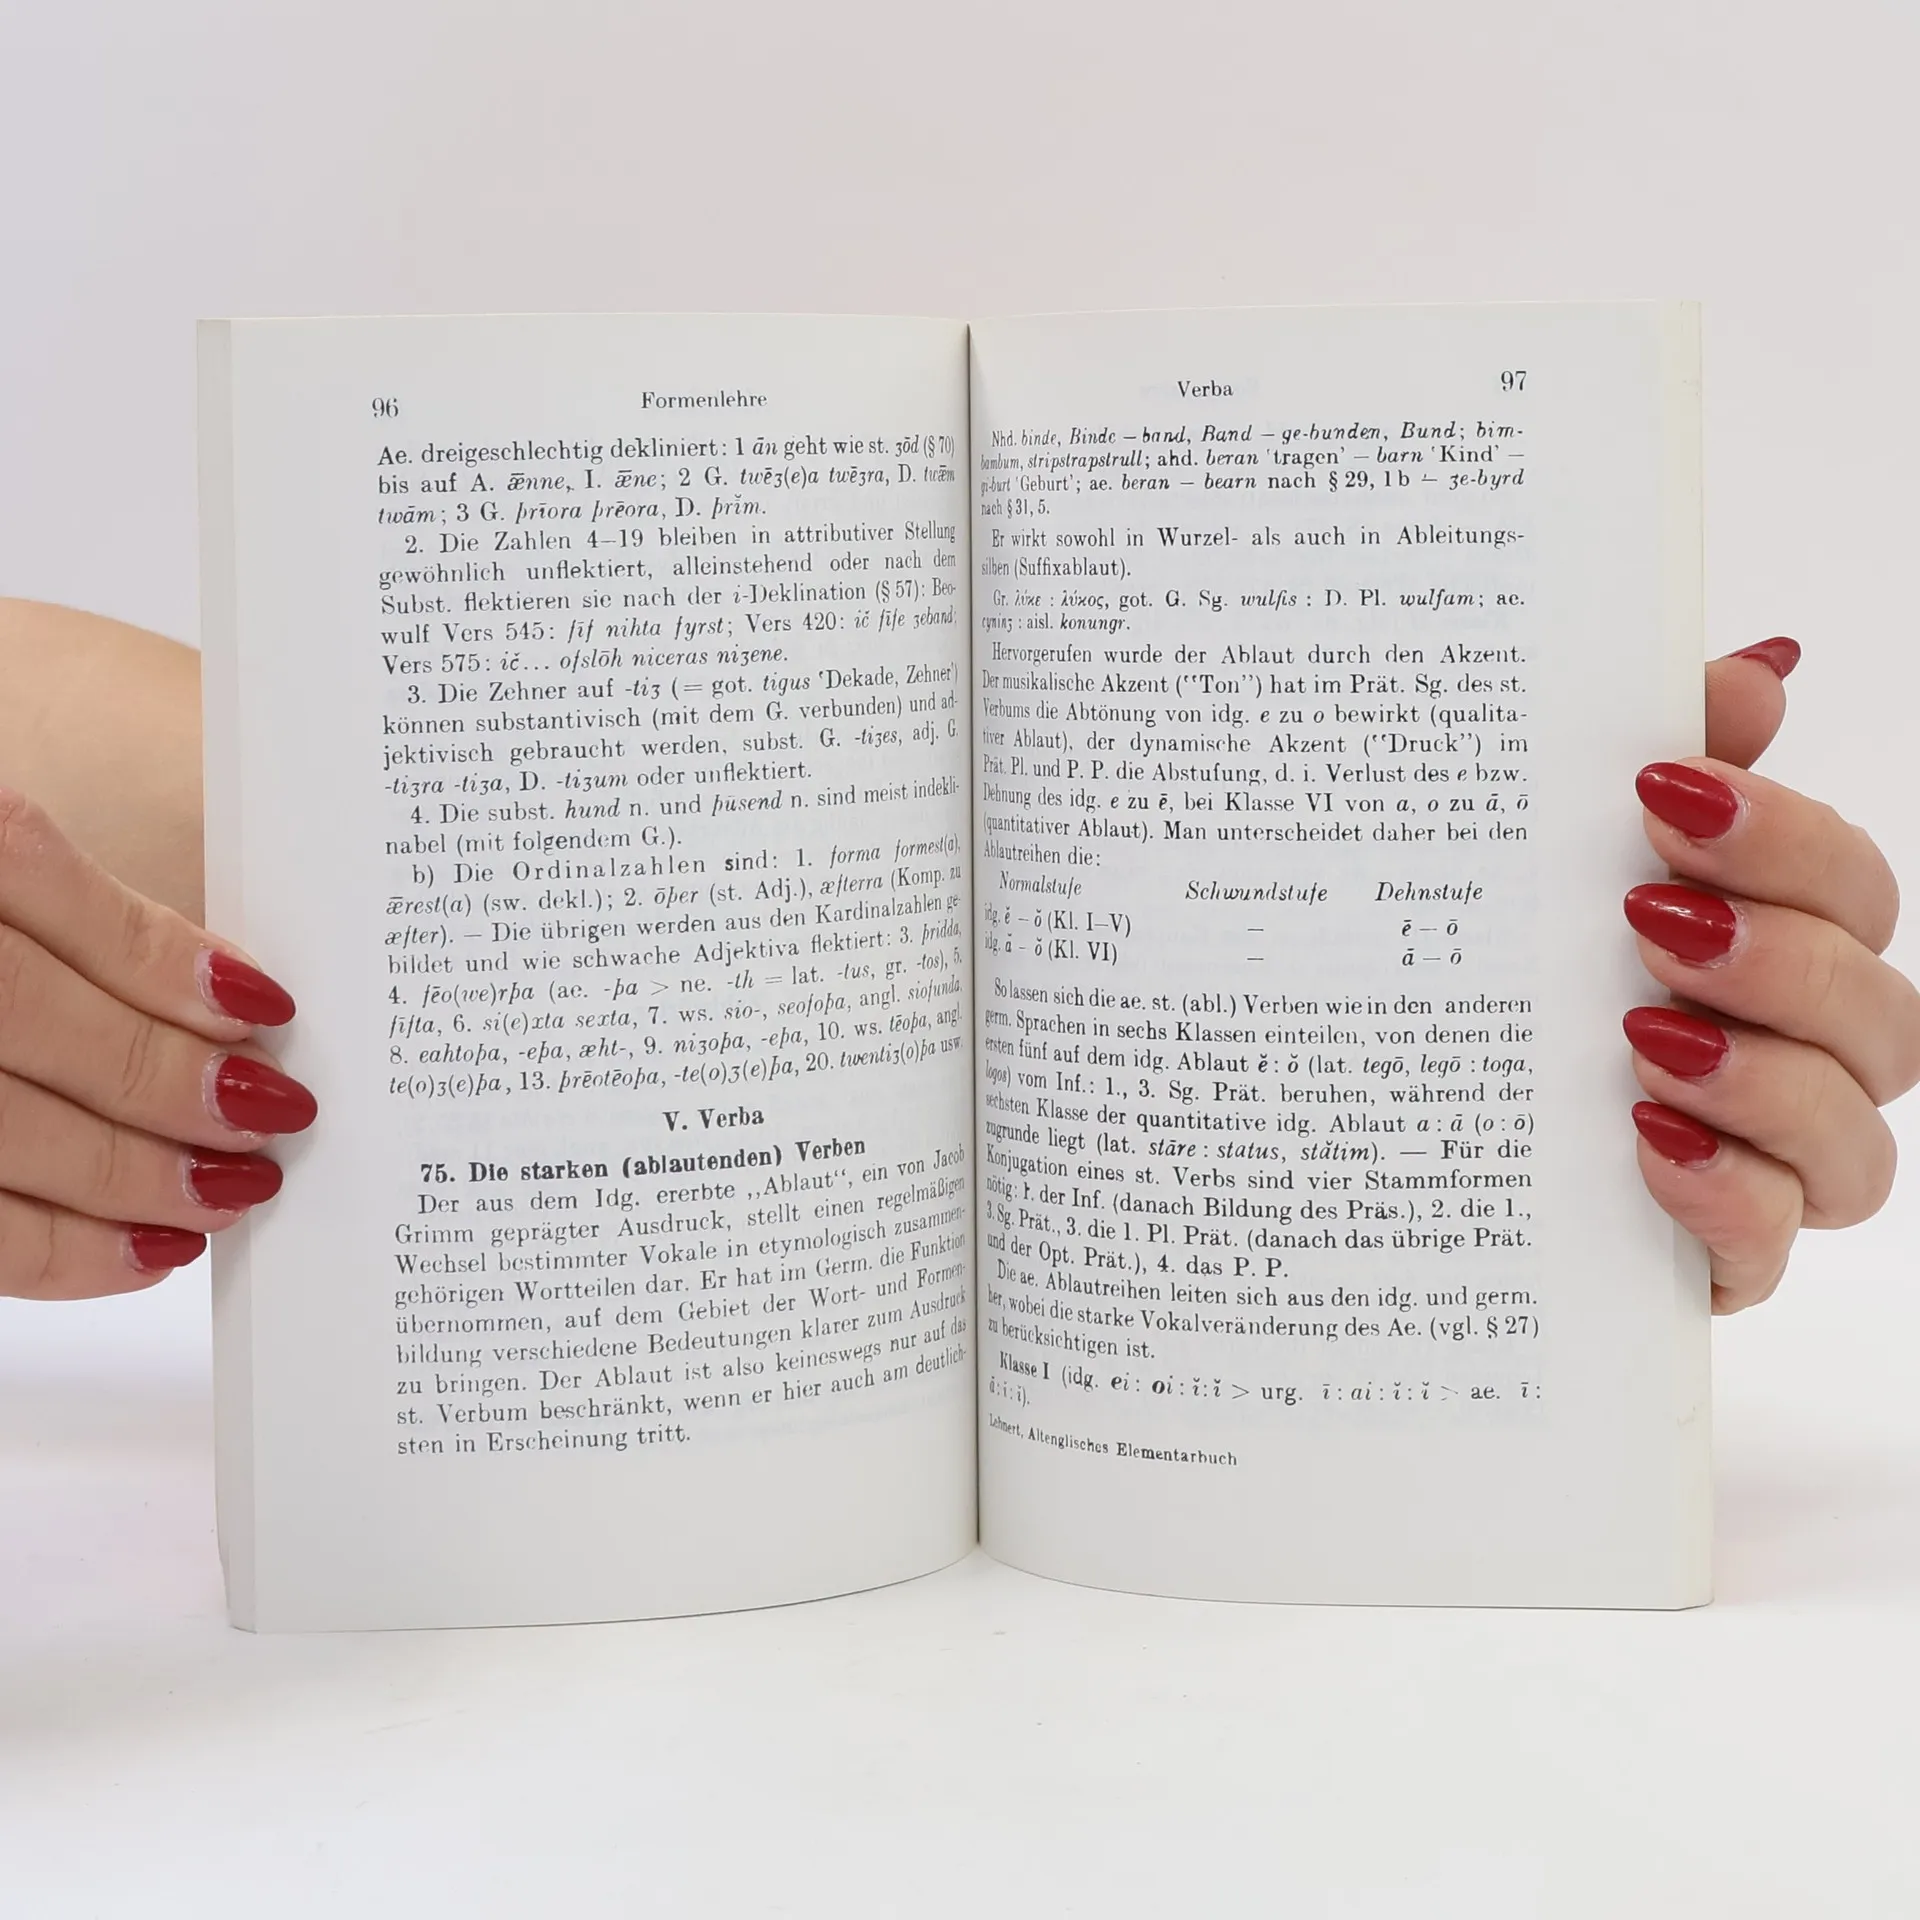 96
Formenlehre
Ae. dreigeschlechtig dekliniert: 1 ān geht wie st. ʒōd (§ 70)
bis auf A. ǣnne, I. ǣne; 2 G. twēʒ(e)a twēʒra, D. twǣm
twām; 3 G. þrīora þrēora, D. þrĭ̄m.
2. Die Zahlen 4–19 bleiben in attributiver Stellung
gewöhnlich unflektiert, alleinstehend oder nach dem
Subst. flektieren sie nach der i-Deklination (§ 57): Beo-
wulf Vers 545: fīf nihta fyrst; Vers 420: ič fīfe ʒeband;
Vers 575: ič... ofslōh niceras niʒene.
3. Die Zehner auf -tiʒ (= got. tigus ‘Dekade, Zehner’)
können substantivisch (mit dem G. verbunden) und ad-
jektivisch gebraucht werden, subst. G. -tiʒes, adj. G.
-tiʒra -tiʒa, D. -tiʒum oder unflektiert.
4. Die subst. hund n. und þūsend n. sind meist indekli-
nabel (mit folgendem G.).
b) Die Ordinalzahlen sind: 1. forma formest(a),
ǣrest(a) (sw. dekl.); 2. ōþer (st. Adj.), æfterra (Komp. zu
æfter). — Die übrigen werden aus den Kardinalzahlen ge-
bildet und wie schwache Adjektiva flektiert: 3. þridda,
4. fēo(we)rþa (ae. -þa > ne. -th = lat. -tus, gr. -tos), 5.
fīfta, 6. si(e)xta sexta, 7. ws. sio-, seofoþa, angl. siofunda,
8. eahtoþa, -eþa, æht-, 9. niʒoþa, -eþa, 10. ws. tēoþa, angl.
te(o)ʒ(e)þa, 13. þrēotēoþa, -te(o)ʒ(e)þa, 20. twentiʒ(o)þa usw.
V. Verba
75. Die starken (ablautenden) Verben
Der aus dem Idg. ererbte ,,Ablaut“, ein von Jacob
Grimm geprägter Ausdruck, stellt einen regelmäßigen
Wechsel bestimmter Vokale in etymologisch zusammen-
gehörigen Wortteilen dar. Er hat im Germ. die Funktion
übernommen, auf dem Gebiet der Wort- und Formen-
bildung verschiedene Bedeutungen klarer zum Ausdruck
zu bringen. Der Ablaut ist also keineswegs nur auf das
st. Verbum beschränkt, wenn er hier auch am deutlich-
sten in Erscheinung tritt.
Verba
97
Nhd. binde, Binde – band, Band – ge-bunden, Bund; bim-
bambum, stripstrapstrull; ahd. beran ‘tragen’ – barn ‘Kind’ –
gi-burt ‘Geburt’; ae. beran – bearn nach § 29, 1b – ʒe-byrd
nach § 31, 5.
Er wirkt sowohl in Wurzel- als auch in Ableitungs-
silben (Suffixablaut).
Gr. λύκε : λύκος, got. G. Sg. wulfis : D. Pl. wulfam; ae.
cyninʒ : aisl. konungr.
Hervorgerufen wurde der Ablaut durch den Akzent.
Der musikalische Akzent (“Ton”) hat im Prät. Sg. des st.
Verbums die Abtönung von idg. e zu o bewirkt (qualita-
tiver Ablaut), der dynamische Akzent (“Druck”) im
Prät. Pl. und P. P. die Abstufung, d. i. Verlust des e bzw.
Dehnung des idg. e zu ē, bei Klasse VI von a, o zu ā, ō
(quantitativer Ablaut). Man unterscheidet daher bei den
Ablautreihen die:
Normalstufe Schwundstufe Dehnstufe
idg. ĕ – ŏ (Kl. I–V) – ē – ō
idg. ă – ŏ (Kl. VI) – ā – ō
So lassen sich die ae. st. (abl.) Verben wie in den anderen
germ. Sprachen in sechs Klassen einteilen, von denen die
ersten fünf auf dem idg. Ablaut ĕ : ŏ (lat. tegō, legō : toga,
logos) vom Inf.: 1., 3. Sg. Prät. beruhen, während der
sechsten Klasse der quantitative idg. Ablaut a : ā (o : ō)
zugrunde liegt (lat. stāre : status, stătim). — Für die
Konjugation eines st. Verbs sind vier Stammformen
nötig: 1. der Inf. (danach Bildung des Präs.), 2. die 1.,
3. Sg. Prät., 3. die 1. Pl. Prät. (danach das übrige Prät.
und der Opt. Prät.), 4. das P. P.
Die ae. Ablautreihen leiten sich aus den idg. und germ.
her, wobei die starke Vokalveränderung des Ae. (vgl. § 27)
zu berücksichtigen ist.
Klasse I (idg. ei : oi : ĭ : ĭ > urg. ī : ai : ĭ : ĭ > ae. ī :
ā : i : i).
Lehnert, Altenglisches Elementarbuch